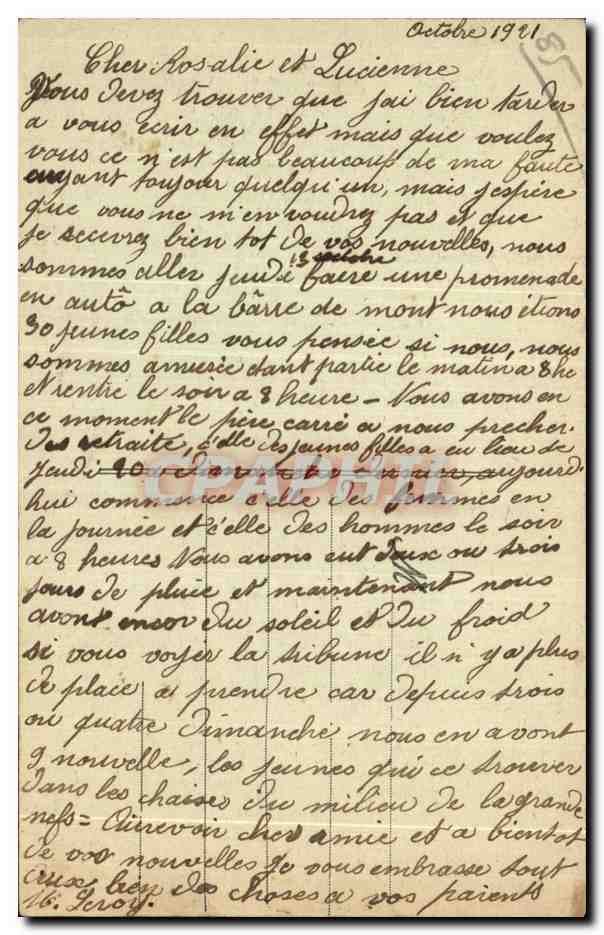 Octobre 1921
85
Cher Rosalie et Lucienne
Vous devez trouver que jai bien tarder
a vous ecrir en effet mais que voulez
vous ce n'est pas beaucoup de ma faute
ayant toujour quelqu'un, mais j'espère
que vous ne m'en voudrez pas et que
je recevrez bien tot de vos nouvelles, nous
13 octobre
sommes aller jeudi faire une promenade
en autô a la bârre de mont nous étions
30 jeunes filles vous pensée si nous, nous
sommes amusée etant partie le matin a 8 he
et rentré le soir a 8 heure – Nous avons en
ce moment le père carré a nous precher.
des retraite, c'elle des jeunes filles a eu lieu de
jeudi 20 a aujourd.
CPAPHIL
hui commence c'elle des femmes en
la journée et c'elle des hommes le soir
a 8 heures Nous avons eut deux ou trois
jours de pluie et maintenant nous
avont encor du soleil et du froid
si vous voyer la tribune il n'y a plus
de place a prendre car depuis trois
ou quatre dimanche nous en avont
9 nouvelle, les jeunes qui ce trouver
dans les chaises du milieu de la grande
nefs = Aurevoir cher amie et a bientot
de vos nouvelles je vous embrasse tout
deux bien des choses a vos parents
Leroy.